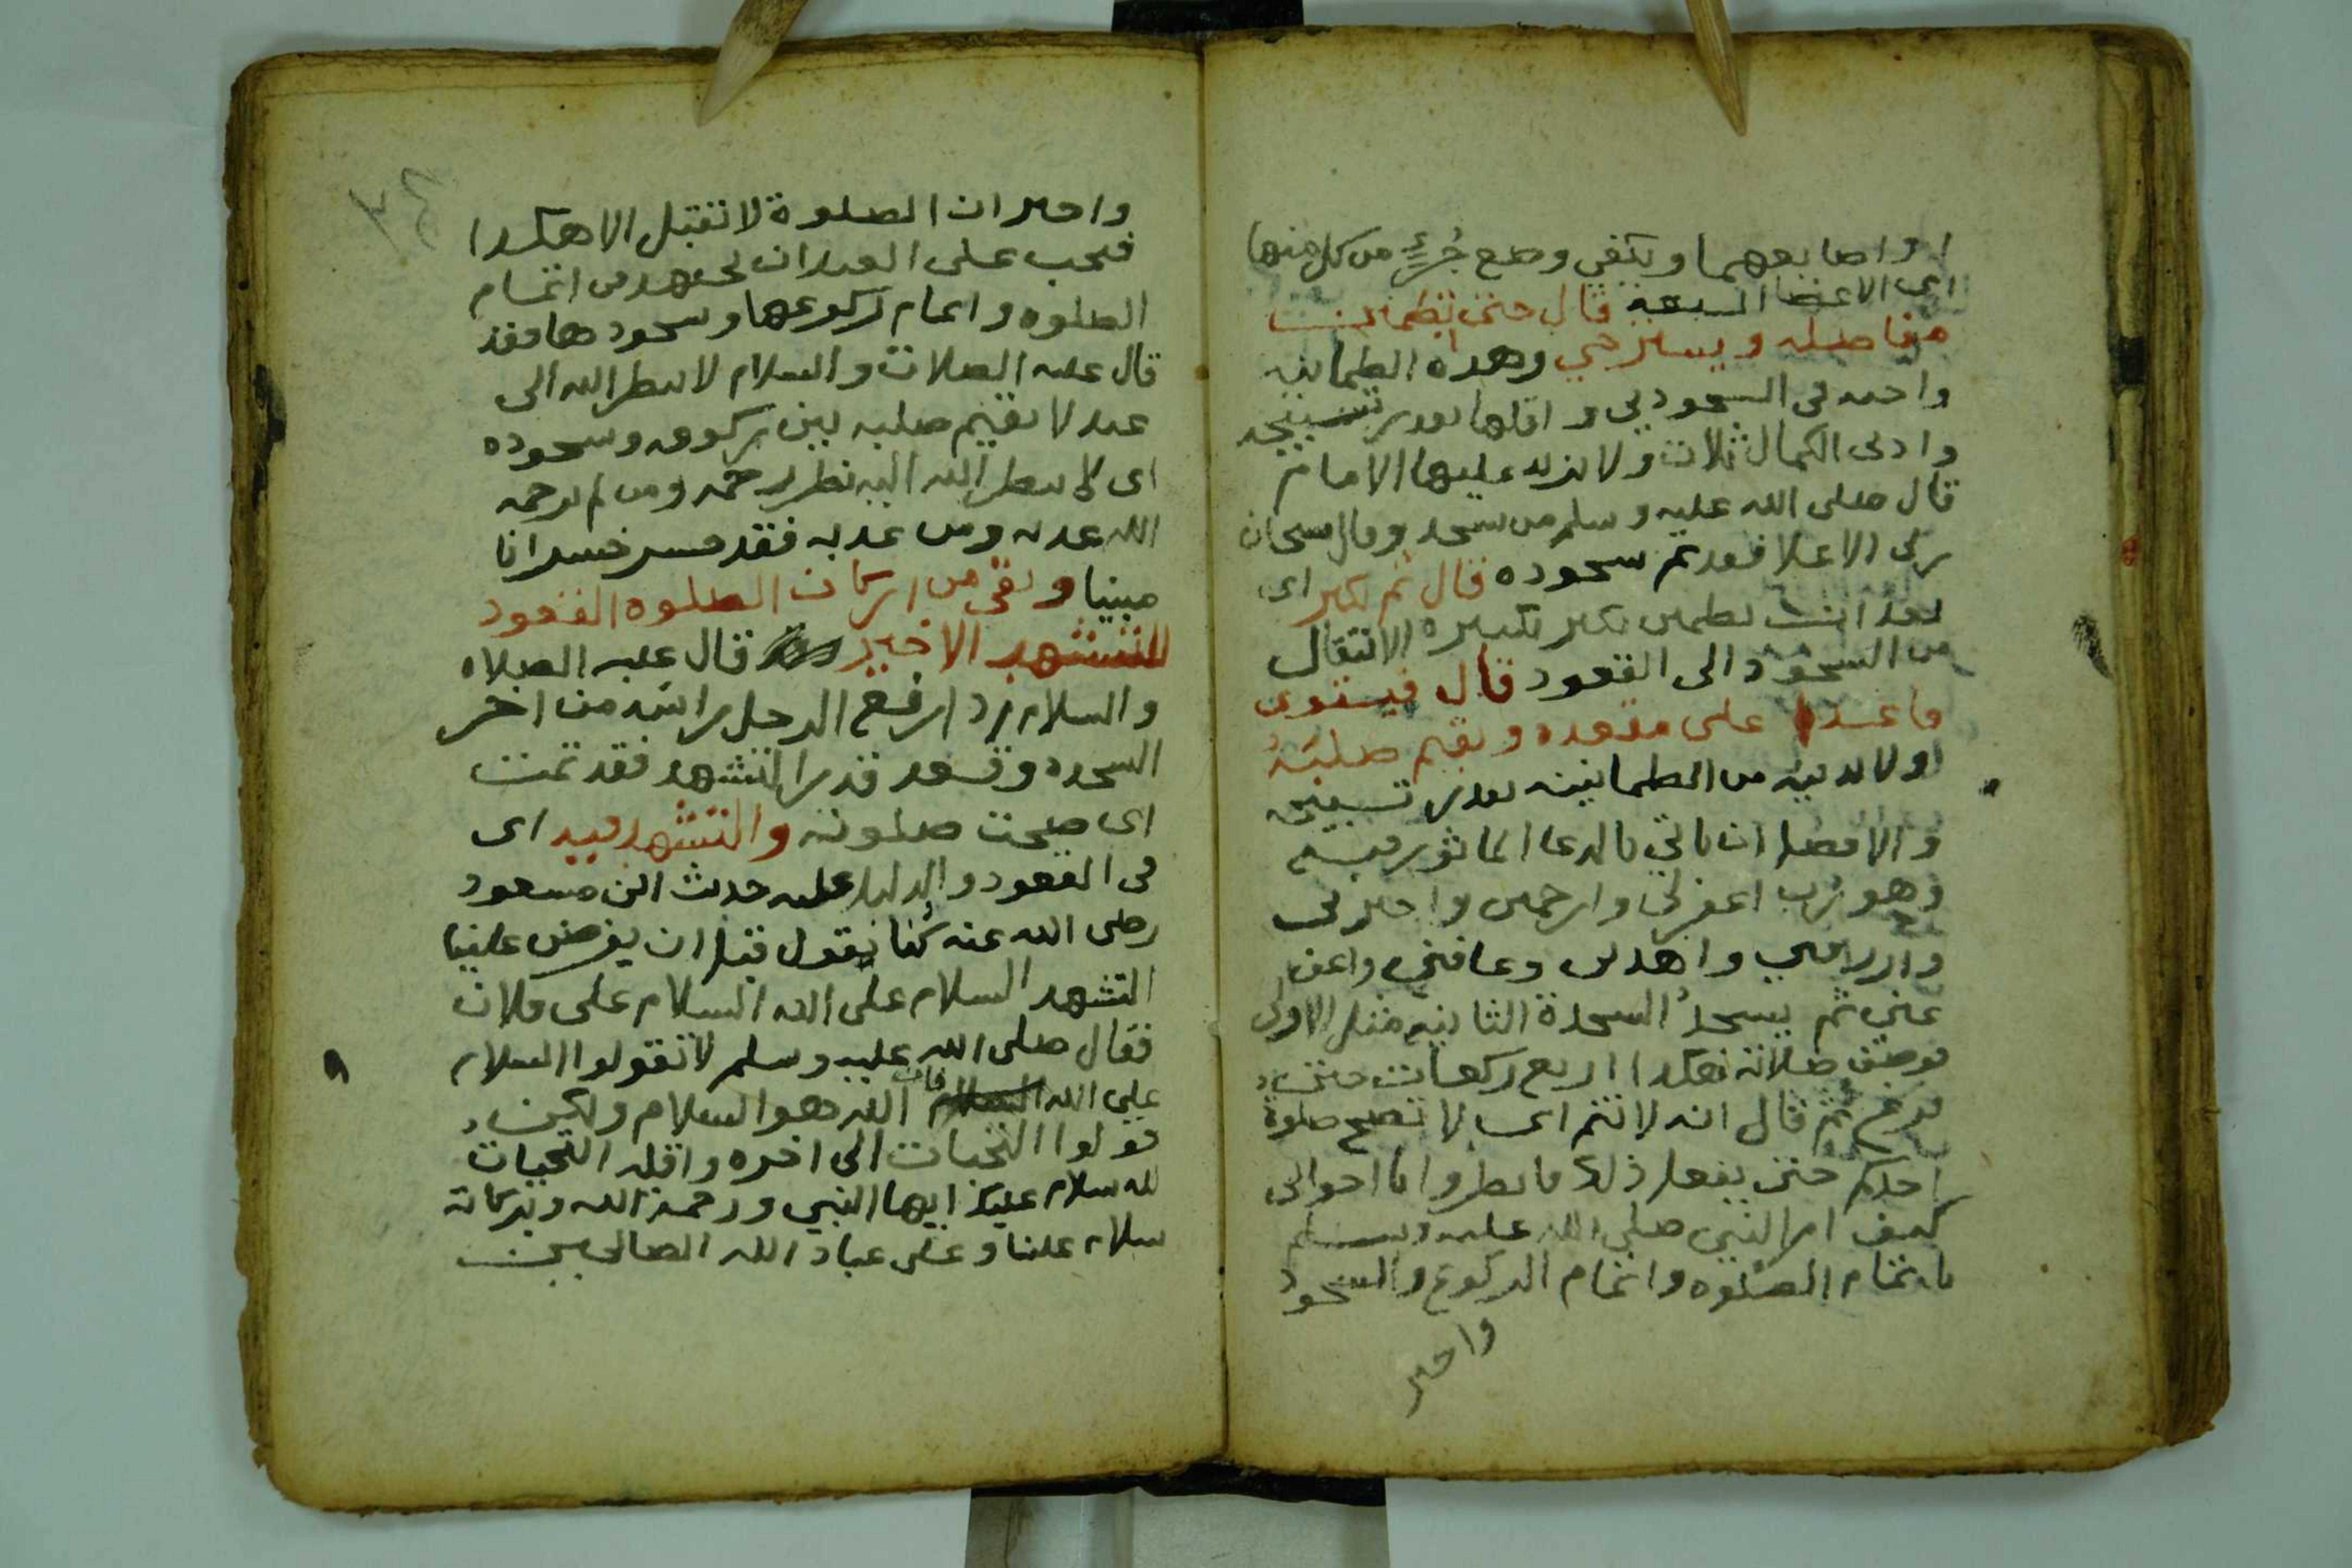 او اصابعهما ويكفي وضع جُزءٍ من كل منها
اى الاعضا السبعة قال حتى تطمئن
مفاصله ويسترخي وهذه الطمانينه
واجبه فى السجود وهى واقلها بقدر تسبيحه
وادنى الكمال ثلاث ولا يزيد عليها الامام
قال صلى الله عليه وسلم من سجد وقال سبحان
ربى الاعلا فقد تم سجوده قال ثم يكبر اى
بعد ان يطمئن يكبر تكبيرة الانتقال
من السجود الى القعود قال فيستوى
قاعدا على مقعده ويقيم صلبه
اولا بد فيه من الطمانينه بقدر تسبيحه
والافضل ان ياتي بالدعا الماثور فيه
وهو رب اغفرلي وارحمنى واجبرنى
وارزقني واهدنى وعافني واعف
عني ثم يسجدُ السجدة الثانيه مثل الاولى
فوصف صلاته هكذا اربع ركعات حتى
فرغ ثم قال انه لا تتم اى لا تصح صلوة
احدكم حتى يفعل ذلك فانظروا يا اخوانى
كيف امر النبي صلى الله عليه وسلم
باتمام الصلوه واتمام الركوع والسجود
واخبر
٣٤
واخبر ان الصلوة لا تقبل الا هكذا
فيجب على العبد ان يجتهد فى اتمام
الصلوه واتمام ركوعها وسجودها فقد
قال عليه الصلاة والسلام لا ينظر الله الى
عبد لا يقيم صلبه بين ركوعه وسجوده
اى لا ينظر الله اليه نظر رحمه ومن لم يرحمه
الله عذبه ومن عذبه فقد خسر خسرانا
مبينا وبقي من اركان الصلوه القعود
للتشهد الاخير قال عليه الصلاه
والسلام اذا رفع الرجل راسه من اخر
السجده وقعد قدر التشهد فقد تمت
اى صحت صلوته والتشهد فيه اى
فى القعود والدليل عليه حديث ابن مسعود
رضى الله عنه كُنا نقول قبل ان يفرض علينا
التشهد السلام على الله السلام على فلان
فقال صلى الله عليه وسلم لا تقولوا السلام
على الله فان الله هو السلام ولكن
قولوا التحيات الى اخره واقله التحيات
لله سلام عليك ايها النبي ورحمة الله وبركاته
سلام علينا وعلى عباد الله الصالحين